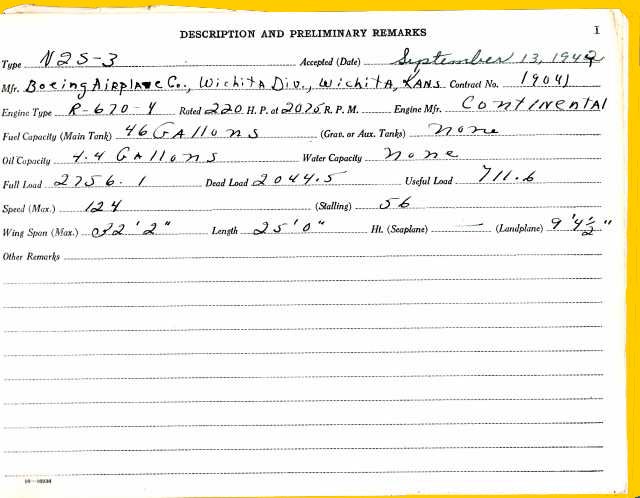 DESCRIPTION AND PRELIMINARY REMARKS 1
Type N2S-3 Accepted (Date) September 13, 1942
Mfr. Boeing Airplane Co., Wichita Div., Wichita, Kans Contract No. 19041
Engine Type R-670-4 Rated 220 H. P. at 2075 R. P. M. Engine Mfr. Continental
Fuel Capacity (Main Tank) 46 Gallons (Grav. or Aux. Tanks) none
Oil Capacity 4.4 Gallons Water Capacity none
Full Load 2756.1 Dead Load 2044.5 Useful Load 711.6
Speed (Max.) 124 (Stalling) 56
Wing Span (Max.) 32' 2" Length 25' 0" Ht. (Seaplane) — (Landplane) 9' 4½"
Other Remarks